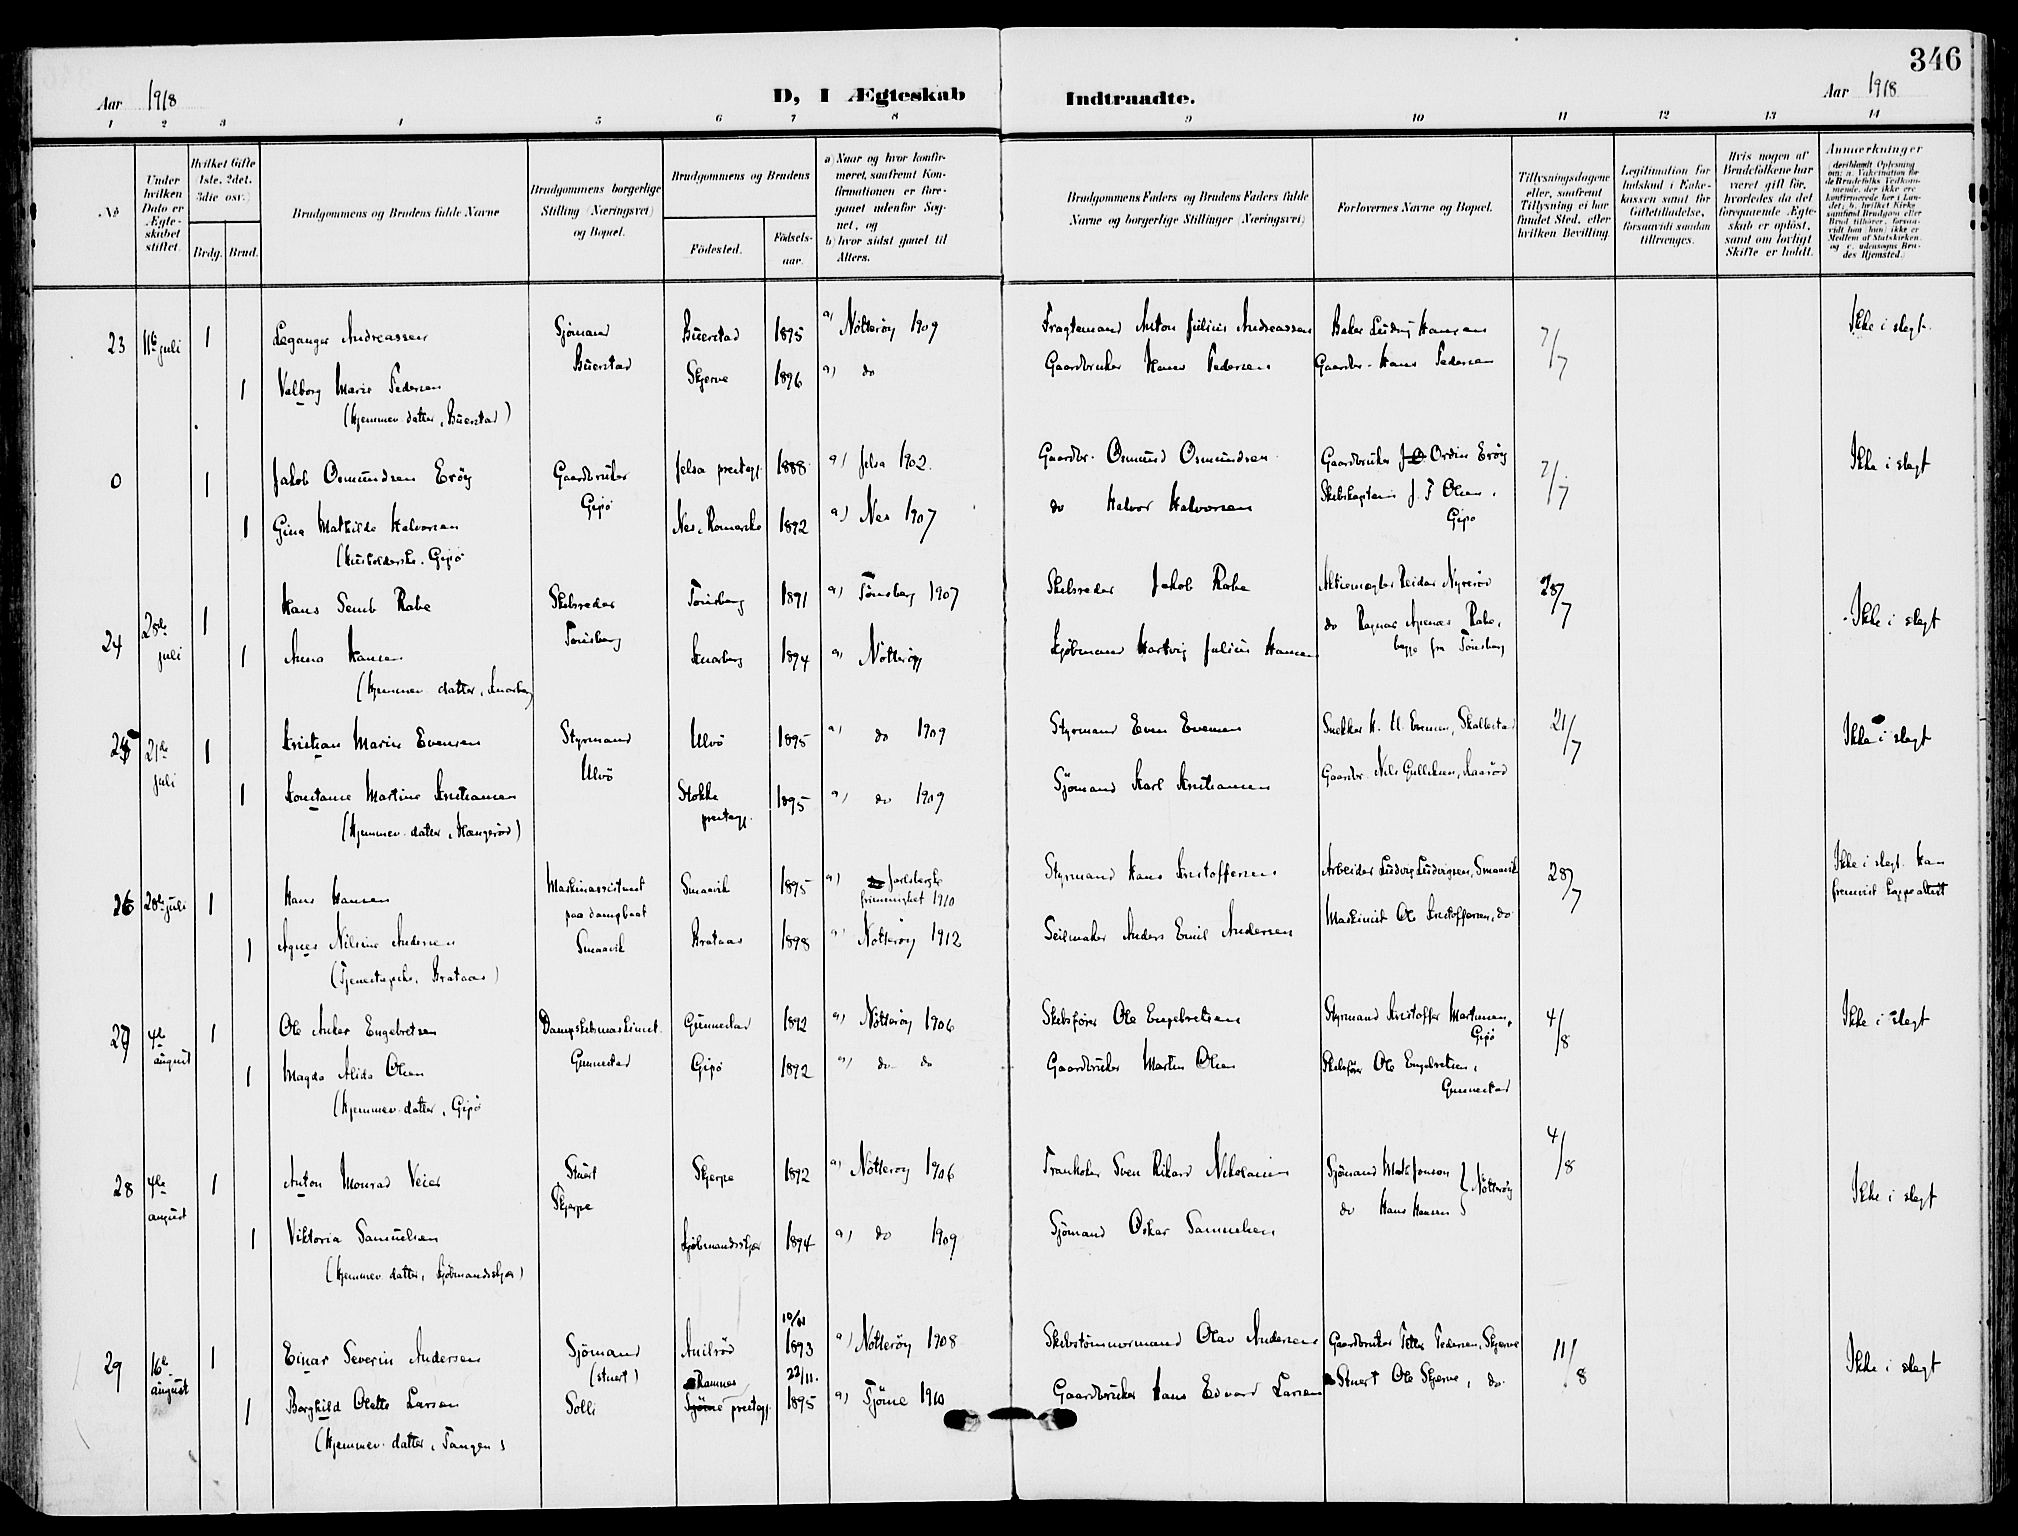 346
Aar 1918 D, I Ægteskab Indtraadte. Aar 1918
1 2 3 4 5 6 7 8 9 10 11 12 13 14
No
Under hvilken Dato er Ægteskabet stiftet.
Hvilket Gifte 1ste, 2det, 3die osv.)
Brdg. Brud.
Brudgommens og Brudens fulde Navne
Brudgommens borgerlige Stilling (Næringsvei) og Bopæl.
Brudgommens og Brudens
Födested.
Födsels-aar.
a) Naar og hvor konfirmeret, saafremt Konfirmationen er foregaaet udenfor Sognet, og
b) hvor sidst gaaet til Alters.
Brudgommens Faders og Brudens Faders fulde Navne og borgerlige Stillinger (Næringsvei)
Forlovernes Navne og Bopæl.
Tillysningsdagene eller, saafremt Tillysning ei har fundet Sted, efter hvilken Bevilling.
Legitimation for Indskud i Enkekassen samt for Giftetilladelse, forsaavidt saadan tiltrænges.
Hvis nogen af Brudefolkene har været gift før, hvorledes da det foregaaende Ægteskab er opløst, samt om lovligt Skifte er holdt.
Anmærkninger
23 11te juli 1 Leganger Andreassen Sjømand Buerstad 1895 a) Nøtterøy 1909 Fragtemand Anton Julius Andreassen Baker Ludvig Hansen 7/7 Ikke i slegt.
Buerstad
1 Valborg Marie Pedersen Skjerve 1896 a) do Gaardbruker Hans Pedersen Gaardbr. Hans Pedersen
(Hjemmev. datter, Buerstad)
0 1 Jakob Osmundsen Erøy Gaardbruker Jelsa prestegj. 1888 a) Jelsa 1902. Gaardbr. Osmund Osmundsen Gaardbruker Ordin Erøy 7/7 Ikke i slegt
Gipø
1 Gina Mathilde Halvorsen Nes, Romerike 1892 a) Nes 1907 do Halvor Halvorsen Skibskaptein J. F Olsen,
Gipø
(Husholderske. Gipø
24 28de juli 1 Hans Semb Rabe Skibsreder Tønsberg 1891 a) Tønsberg 1907 Skibsreder Jakob Rabe Aktiemægler Reidar Nyrerød 28/7 Ikke i slegt
Tønsberg do Ragnar Apenæs Rabe,
begge fra Tønsberg
1 Anna Hansen Knarberg 1894 a) Nøtterøy Kjøbmand Hartvig Julius Hansen
(Hjemmev. datter, Knarberg)
25 21de juli 1 Kristian Marius Evensen Styrmand Ulvø 1895 a) do 1909 Styrmand Even Evensen Snekker H. M. Evensen, Skallestad 21/7 Ikke i slegt
Ulvø
1 Konstanse Martine Kristiansen Stokke prestegj. 1895 a) do 1909 Sjømand Karl Kristiansen Gaardbr. Nils Gulliksen,
(Hjemmev. datter,
26 28de juli 1 Hans Hansen Maskinassistent Smaavik 1895 a) Jarlsbergske frimenighet 1910 Styrmand Hans Kristoffersen Arbeider Ludvig Ludvigsen, Smaavik 28/7 Ikke i slegt.
paa dampbaat
Smaavik
1 Agnes Nilsine Andersen Brataas 1898 a) Nøtterøy 1912 Seilmaker Anders Emil Andersen Maskinist Ole Kristoffersen, do
(Tjenestepike, Brataas)
27 4de august 1 Ole Anker Engebretsen Dampskibsmaskinist. Gunnestad 1892 a) Nøtterøy 1906 Skibsfører Ole Engebretsen Styrmand Kristoffer Martinsen, 4/8 Ikke i slegt
Gipø
Gunnestad
1 Magda Alida Olsen Gipø 1892 a) do do Gaardbruker Martin Olsen Skibsfører Ole Engebretsen,
Gunnestad
(Hjemmev. datter, Gipø
28 4de august 1 Anton Monrad Veier Stuert Skjerpe 1892 a) Nøtterøy 1906 Trankoker Sven Rikard Nikolaisen Sjømand Math Jonson } Nøtterøy 4/8 Ikke i slegt
Skjerpe do Hans Hansen
1 Viktoria Samuelsen Kjøbmandsskjær 1894 a) do 1909 Sjømand Oskar Samuelsen
(Hjemmev. datter, Kjøbmandsskjær)
29 16de august 1 Einar Severin Andersen Sjømand 10/11 1893 a) Nøtterøy 1908 Skibstømmermand Olav Andersen Gaardbruker Petter Pedersen, Skjerve 11/8 Ikke i slegt
(stuert)
Solli
1 Borghild Olette Larsen Ramnes prestegj. 22/11. 1895 a) Tjøme 1910 Gaardbruker Hans Edvard Larsen Stuert Ole Skjerve, do.
(Hjemmev. datter, Tangen)